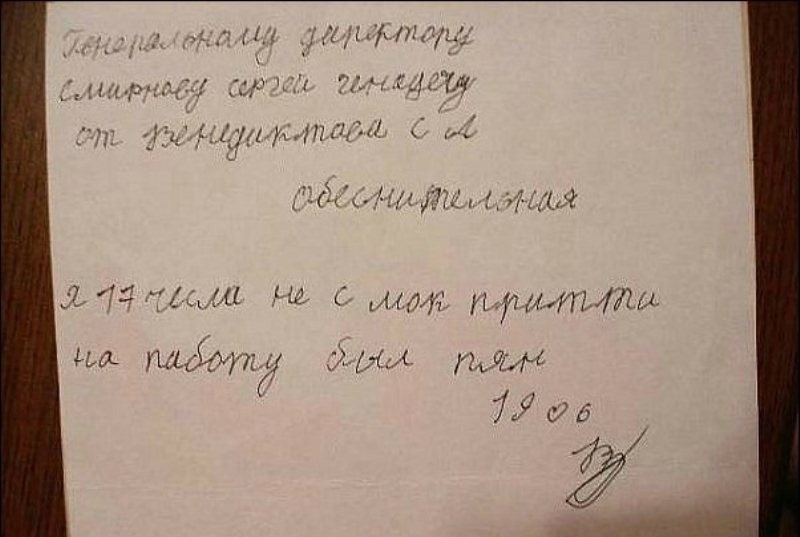 Генеральному директору
Смирнову сергей генадечу
от Венедиктова С Л
обеснительная
я 17 числа не с мок притти
на паботу был пян
19 06